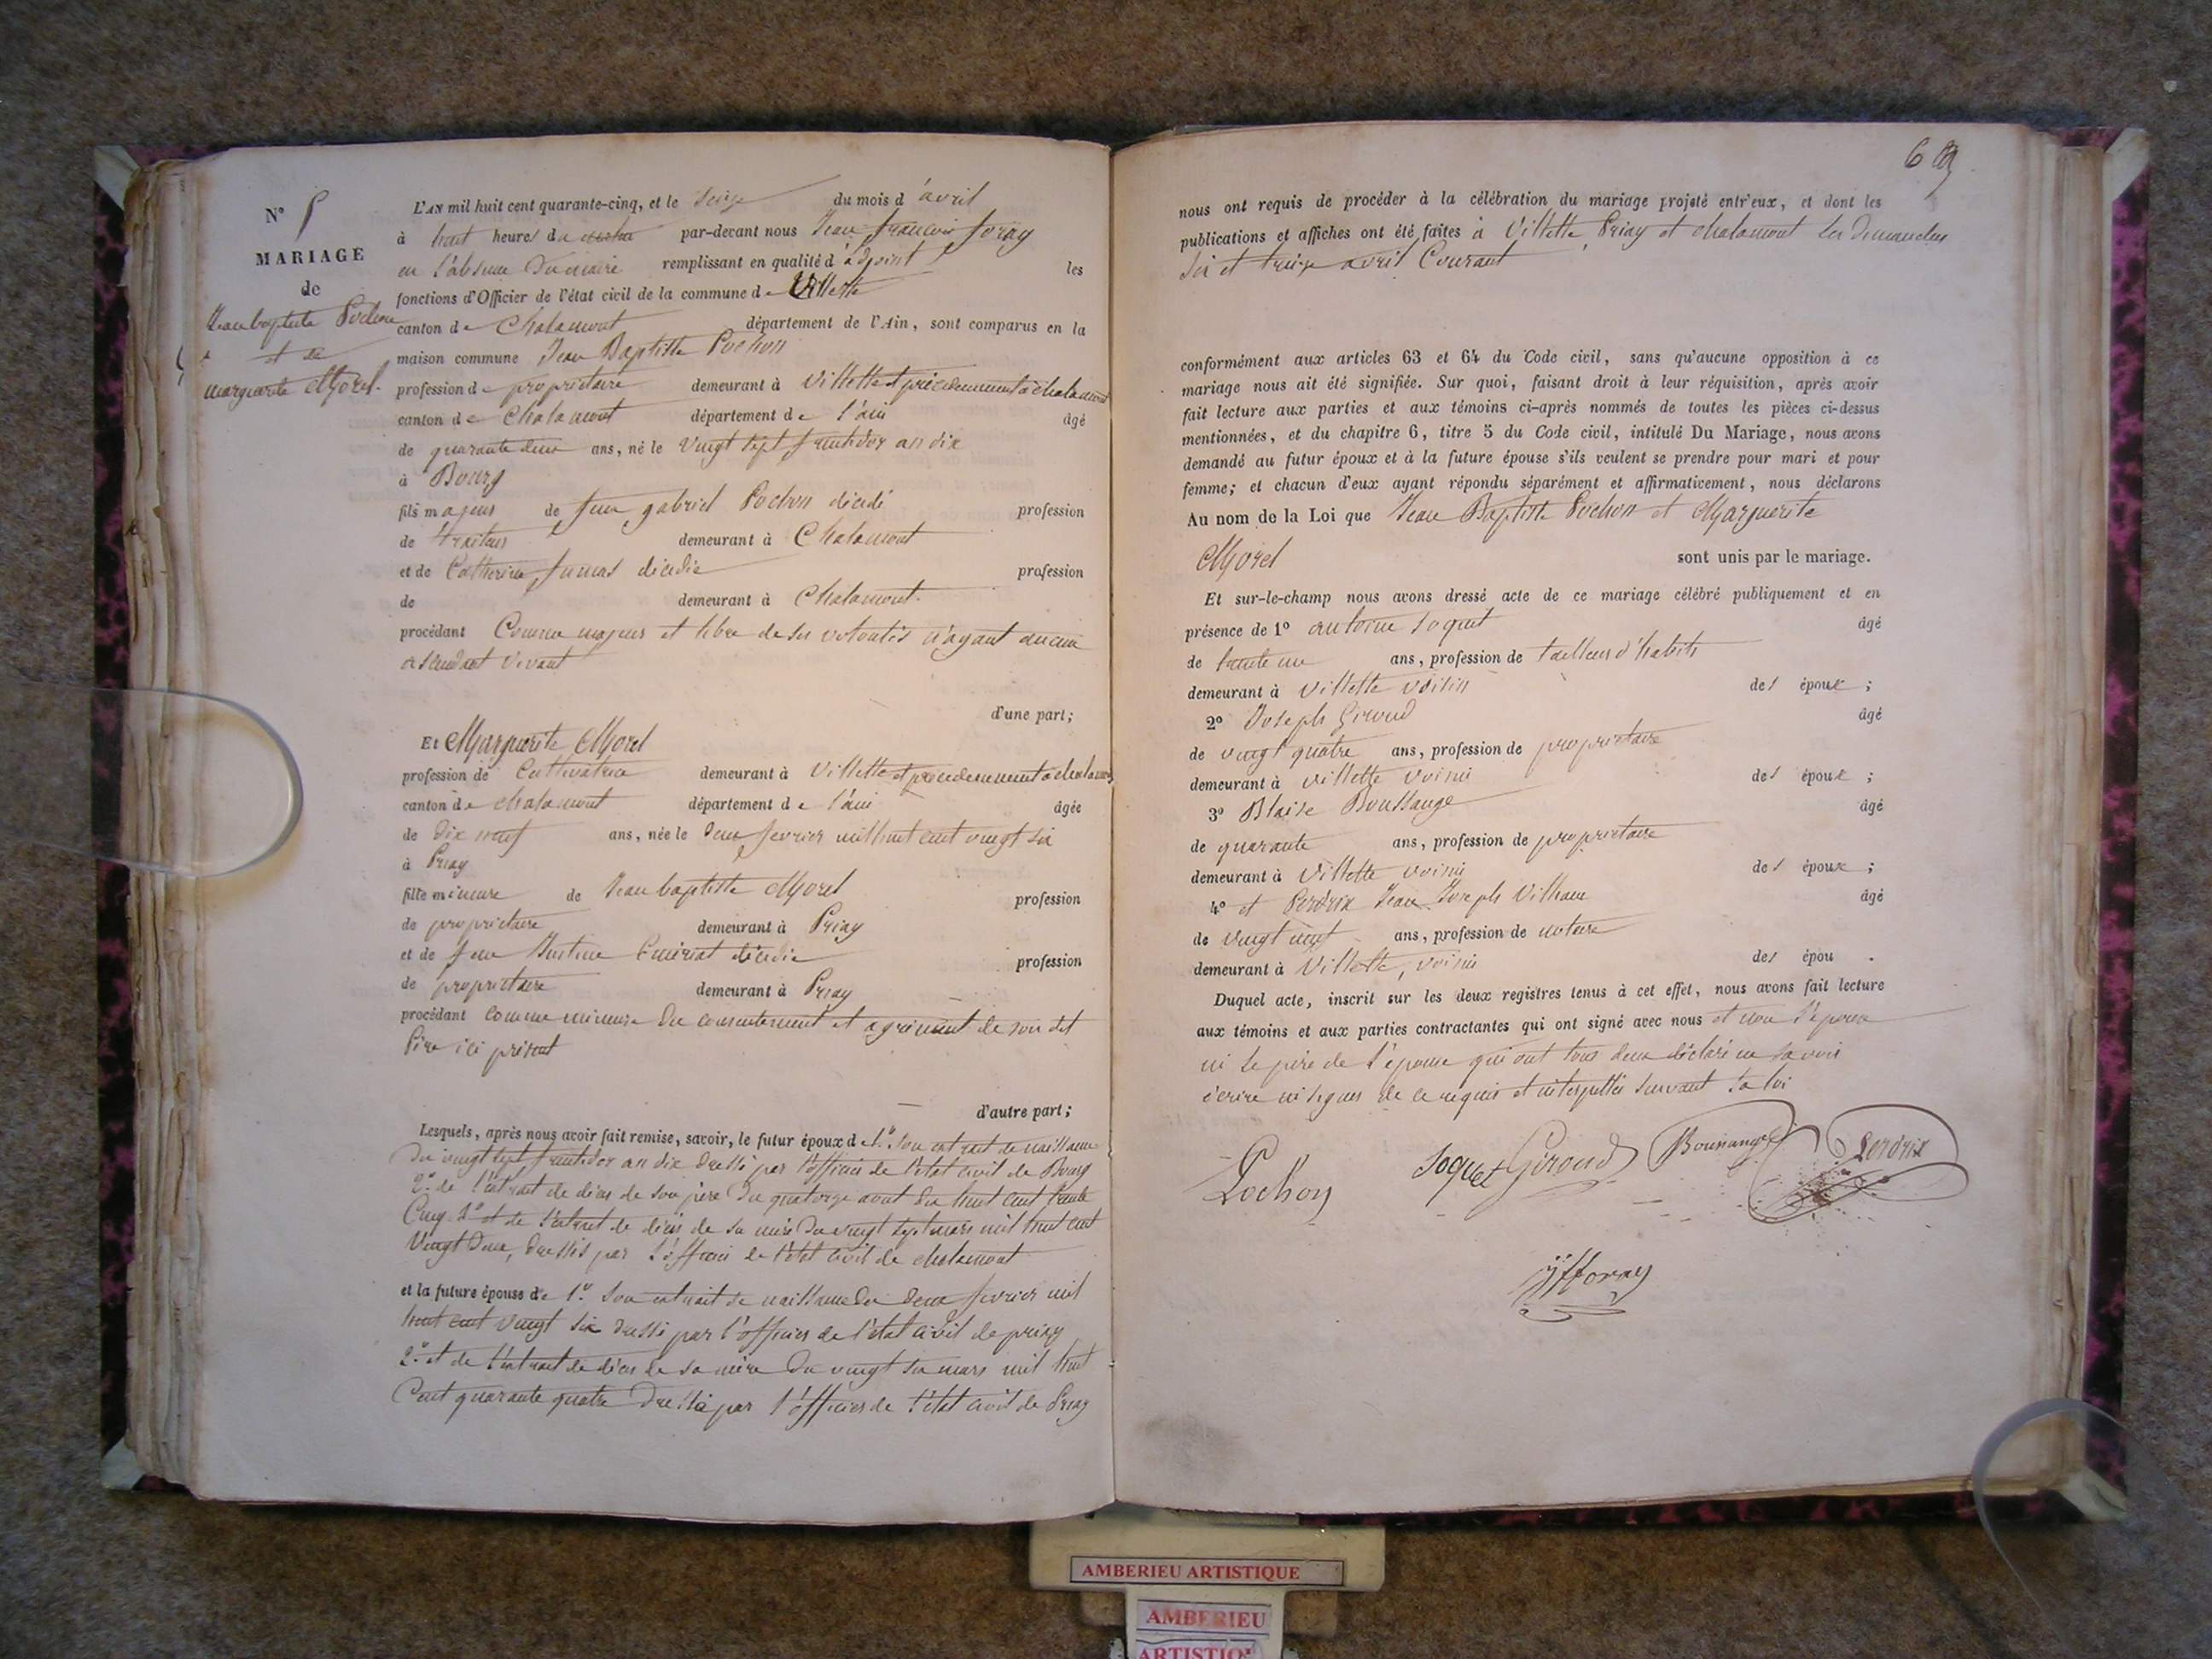 N° 5
MARIAGE
de
Jean baptiste Pochon
et de
marguerite Morel.
L'AN mil huit cent quarante-cinq, et le Seize du mois d'avril
à huit heures du matin par-devant nous Jean françois foray
en l'absence du maire remplissant en qualité d'adjoint les
fonctions d'Officier de l'état civil de la commune de Villette
canton de Chalamont département de l'Ain, sont comparus en la
maison commune Jean Baptiste Pochon
profession de propriétaire demeurant à Villette et précédemment à chalamont
canton de Chalamont département de l'ain âgé
de quarante deux ans, né le Vingt sept fructidor an dix
à Bourg
fils majeur de feu gabriel Pochon décédé profession
de traiteur demeurant à Chalamont
et de Catherine décédée profession
de demeurant à Chalamont.
procédant Comme majeur et libre de ses volontés n'ayant aucun
ascendant vivant
d'une part;
Et Marguerite Morel
profession de Cultivatrice demeurant à Villette et précédemment à chalamont
canton de chalamont département de l'ain âgée
de dix neuf ans, née le deux fevrier mil huit cent vingt six
à Priay
fille mineure de Jean baptiste Morel profession
de propriétaire demeurant à Priay
et de feue décédée profession
de propriétaire demeurant à Priay
procédant comme mineure du consentement et agrément de son dit
Père ici présent
d'autre part;
Lesquels, après nous avoir fait remise, savoir, le futur époux de 1° Son extrait de naissance
du vingt sept fructidor an dix dressé par l'officier de l'état civil de Bourg
2° de l'extrait de décès de son père du quatorze aout dix huit cent trente
Cinq et de l'extrait de décès de sa mère du vingt sept mars mil huit cent
Vingt deux, dressés par l'officier de l'état civil de chalamont
et la future épouse de 1° Son extrait de naissance du deux fevrier mil
huit cent vingt six dressé par l'officier de l'état civil de priay
2° et de l'extrait de décès de sa mère du vingt six mars mil huit
Cent quarante quatre dressé par l'officier de l'état civil de Priay
69
nous ont requis de procéder à la célébration du mariage projeté entr'eux, et dont les
publications et affiches ont été faites à Villette, Priay et chalamont les dimanches
Six et treize avril Courant
conformément aux articles 63 et 64 du Code civil, sans qu'aucune opposition à ce
mariage nous ait été signifiée. Sur quoi, faisant droit à leur réquisition, après avoir
fait lecture aux parties et aux témoins ci-après nommés de toutes les pièces ci-dessus
mentionnées, et du chapitre 6, titre 5 du Code civil, intitulé Du Mariage, nous avons
demandé au futur époux et à la future épouse s'ils veulent se prendre pour mari et pour
femme; et chacun d'eux ayant répondu séparément et affirmativement, nous déclarons
Au nom de la Loi que Jean Baptiste Pochon et Marguerite
Morel sont unis par le mariage.
Et sur-le-champ nous avons dressé acte de ce mariage célébré publiquement et en
présence de 1° antoine Soquet âgé
de trente un ans, profession de tailleur d'habits
demeurant à Villette voisin des époux ;
2° Joseph Giroud âgé
de vingt quatre ans, profession de propriétaire
demeurant à villette voisin des époux ;
3° Blaise Boussange âgé
de quarante ans, profession de propriétaire
demeurant à Villette voisin des époux ;
4° et Perdrix Jean Joseph âgé
de vingt ans, profession de notaire
demeurant à Villette, voisin des épou .
Duquel acte, inscrit sur les deux registres tenus à cet effet, nous avons fait lecture
aux témoins et aux parties contractantes qui ont signé avec nous et non l'épouse
ni le père de l'épouse qui ont tous deux déclaré ne savoir
écrire ni signer de ce requis et interpellés suivant la loi
Pochon Soquet Giroud Boussange Perdrix
jfforay
AMBERIEU ARTISTIQUE
AMBERIEU
ARTISTIQUE